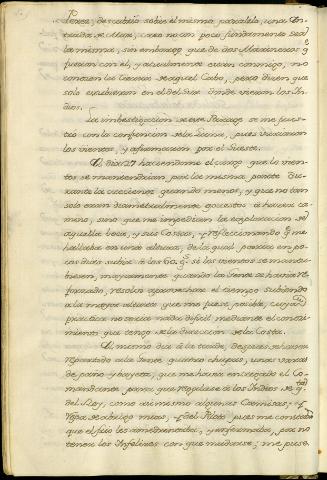 Perez, descubrió sobre el mismo paralelo, una En-
trada se llama, creo no con poco fundamento sea
la misma, sin embargo que de dos Marineros q̃
fueron con el, y actualmente están conmigo, no
conocen las tierras de aquel Cabo, pero dicen que
solo estubieron en el del Sur donde vieron los In-
dios.
La imbestigacion de este Parage se me frus-
tró con la confeccion de la Gente, pues viraron
los vientos, y afirmaron por el Sueste.
El dia 27 haciendome el cargo que los vien-
tos se mantendrian por la misma parte du-
rante la creciente quando menos, y que no tan
solo eran diametralmente opuestos à hacer ca-
mino, sino que me impedian la exploracion de
aquella boca, y sus Costas, reflexionando q̃ me
hallaba en una altura, de la qual podria en po-
cos dias subir à los 60.g.s si los vientos se mantu-
biesen, mayormente quando la Gente se havia re-
forzado, resolví aprovechar el tiempo subiendo
à la mayor altura que me fuese posible, cuya
practica no seria nada dificil mediante el conoci-
miento que tengo de la direccion de la Costa.
El mismo dia à la tarde, despues de haver
repartido à la Gente quatro chupas, unas varas
de paño y bayeta, que me havia entregado el Co-
mandante para que regalase à los Indios de q.ta
del Rey, como asimismo algunas Camisas, y
ropa de abrigo mias, y del Piloto, pues me constaba
que el frio les amedrentaba, y enfermaba, por no
tener los Infelices con que mudarse; me puse